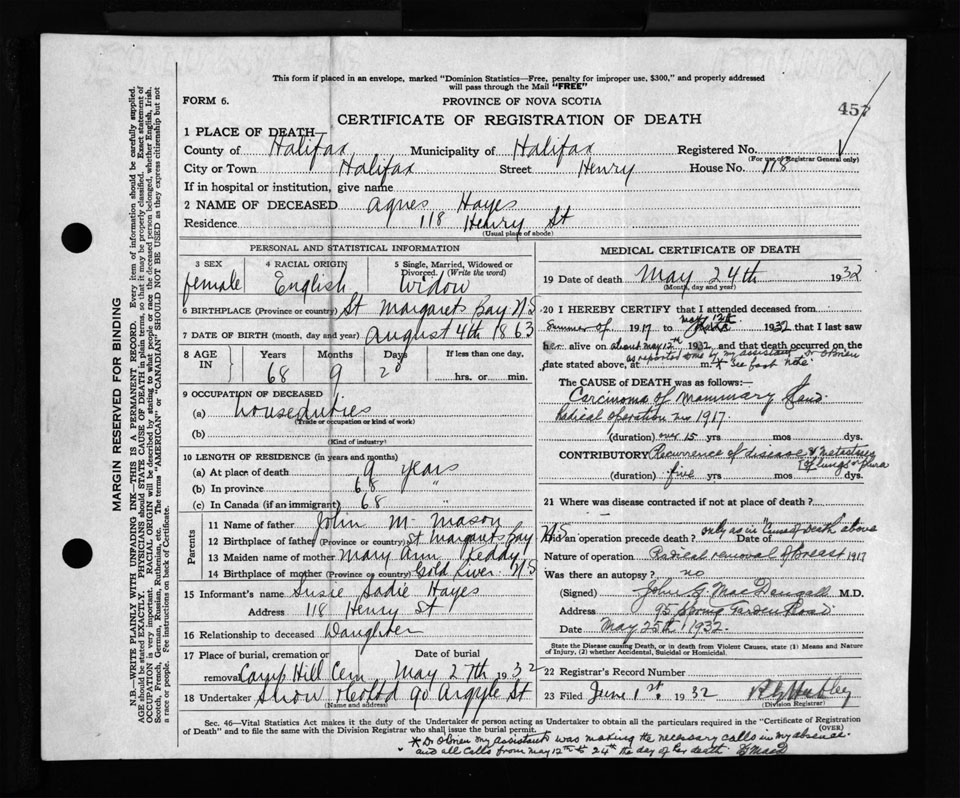 This form if placed in an envelope, marked "Dominion Statistics—Free, penalty for improper use, $300," and properly addressed
will pass through the Mail "FREE"
FORM 6.
PROVINCE OF NOVA SCOTIA
457
CERTIFICATE OF REGISTRATION OF DEATH
1 PLACE OF DEATH—
County of Halifax Municipality of Halifax Registered No.
(For use of Registrar General only)
City or Town Halifax Street Henry House No. 118
If in hospital or institution, give name
2 NAME OF DECEASED Agnes Hayes
Residence 118 Henry St
(Usual place of abode)
PERSONAL AND STATISTICAL INFORMATION
3 SEX 4 RACIAL ORIGIN 5 Single, Married, Widowed or Divorced. (Write the word)
female English Widow
6 BIRTHPLACE (Province or country) St Margarets Bay N S
7 DATE OF BIRTH (month, day and year) August 4th 1863
8 AGE IN Years Months Days If less than one day.
68 9 20 hrs. or min.
9 OCCUPATION OF DECEASED
(a) houseduties
(Trade or occupation or kind of work)
(b)
(Kind of industry)
10 LENGTH OF RESIDENCE (in years and months)
(a) At place of death 9 years
(b) In province 68 "
(c) In Canada (if an immigrant) 68 "
Parents
11 Name of father John M. Mason
12 Birthplace of father (Province or country) St Margarets Bay
13 Maiden name of mother Mary Ann Keddy
14 Birthplace of mother (Province or country) Gold River N S
15 Informant's name Susie Sadie Hayes
Address 118 Henry St
16 Relationship to deceased Daughter
17 Place of burial, cremation or removal Camp Hill Cem Date of burial May 27th 1932
18 Undertaker Snow & Co Ltd 90 Argyle St
(Name and address)
MEDICAL CERTIFICATE OF DEATH
19 Date of death May 24th 1932
(Month, day and year)
20 I HEREBY CERTIFY that I attended deceased from
Summer of 1917 to May 12th 1932 that I last saw
her alive on about May 12th 1932 and that death occurred on the
as reported to me by my assistant Dr O'Brien
date stated above, at m. * See foot note
The CAUSE OF DEATH was as follows:—
Carcinoma of Mammary Gland.
Radical operation in 1917.
(duration) over 15 yrs mos dys.
CONTRIBUTORY Recurrence of disease & Metastasis
of lungs & pleura
(duration) five yrs. mos. dys.
21 Where was disease contracted if not at place of death?
N.S. only as in "Cause of Death" above
Did an operation precede death? Date of
Nature of operation Radical removal of breast 1917
Was there an autopsy? no
(Signed) John G. MacDougall M.D.
Address 95 Spring Garden Road
Date May 25th 1932.
State the Disease causing Death, or in death from Violent Causes, state (1) Means and Nature of Injury, (2) whether Accidental, Suicidal or Homicidal.
22 Registrar's Record Number
23 Filed June 1st 1932
(Division Registrar)
Sec. 46—Vital Statistics Act makes it the duty of the Undertaker or person acting as Undertaker to obtain all the particulars required in the "Certificate of Registration
of Death" and to file the same with the Division Registrar who shall issue the burial permit. (OVER)
* Dr O'Brien my assistant was making the necessary calls in my absence
and all calls from May 12th to 24th the day of her death. JGMacD
MARGIN RESERVED FOR BINDING
N.B.—WRITE PLAINLY WITH UNFADING INK—THIS IS A PERMANENT RECORD. Every item of information should be carefully supplied.
AGE should be stated EXACTLY. PHYSICIANS should STATE CAUSE OF DEATH in plain terms, so that it may be properly classified. Exact statement of
OCCUPATION is very important. RACIAL ORIGIN will be described by stating to what people or race the deceased person belonged, whether English, Irish,
Scotch, French, German, Russian, Ruthenian, etc. The terms "AMERICAN" or "CANADIAN" SHOULD NOT BE USED as they express citizenship but not
a race or people. Fee instructions on back of Certificate.